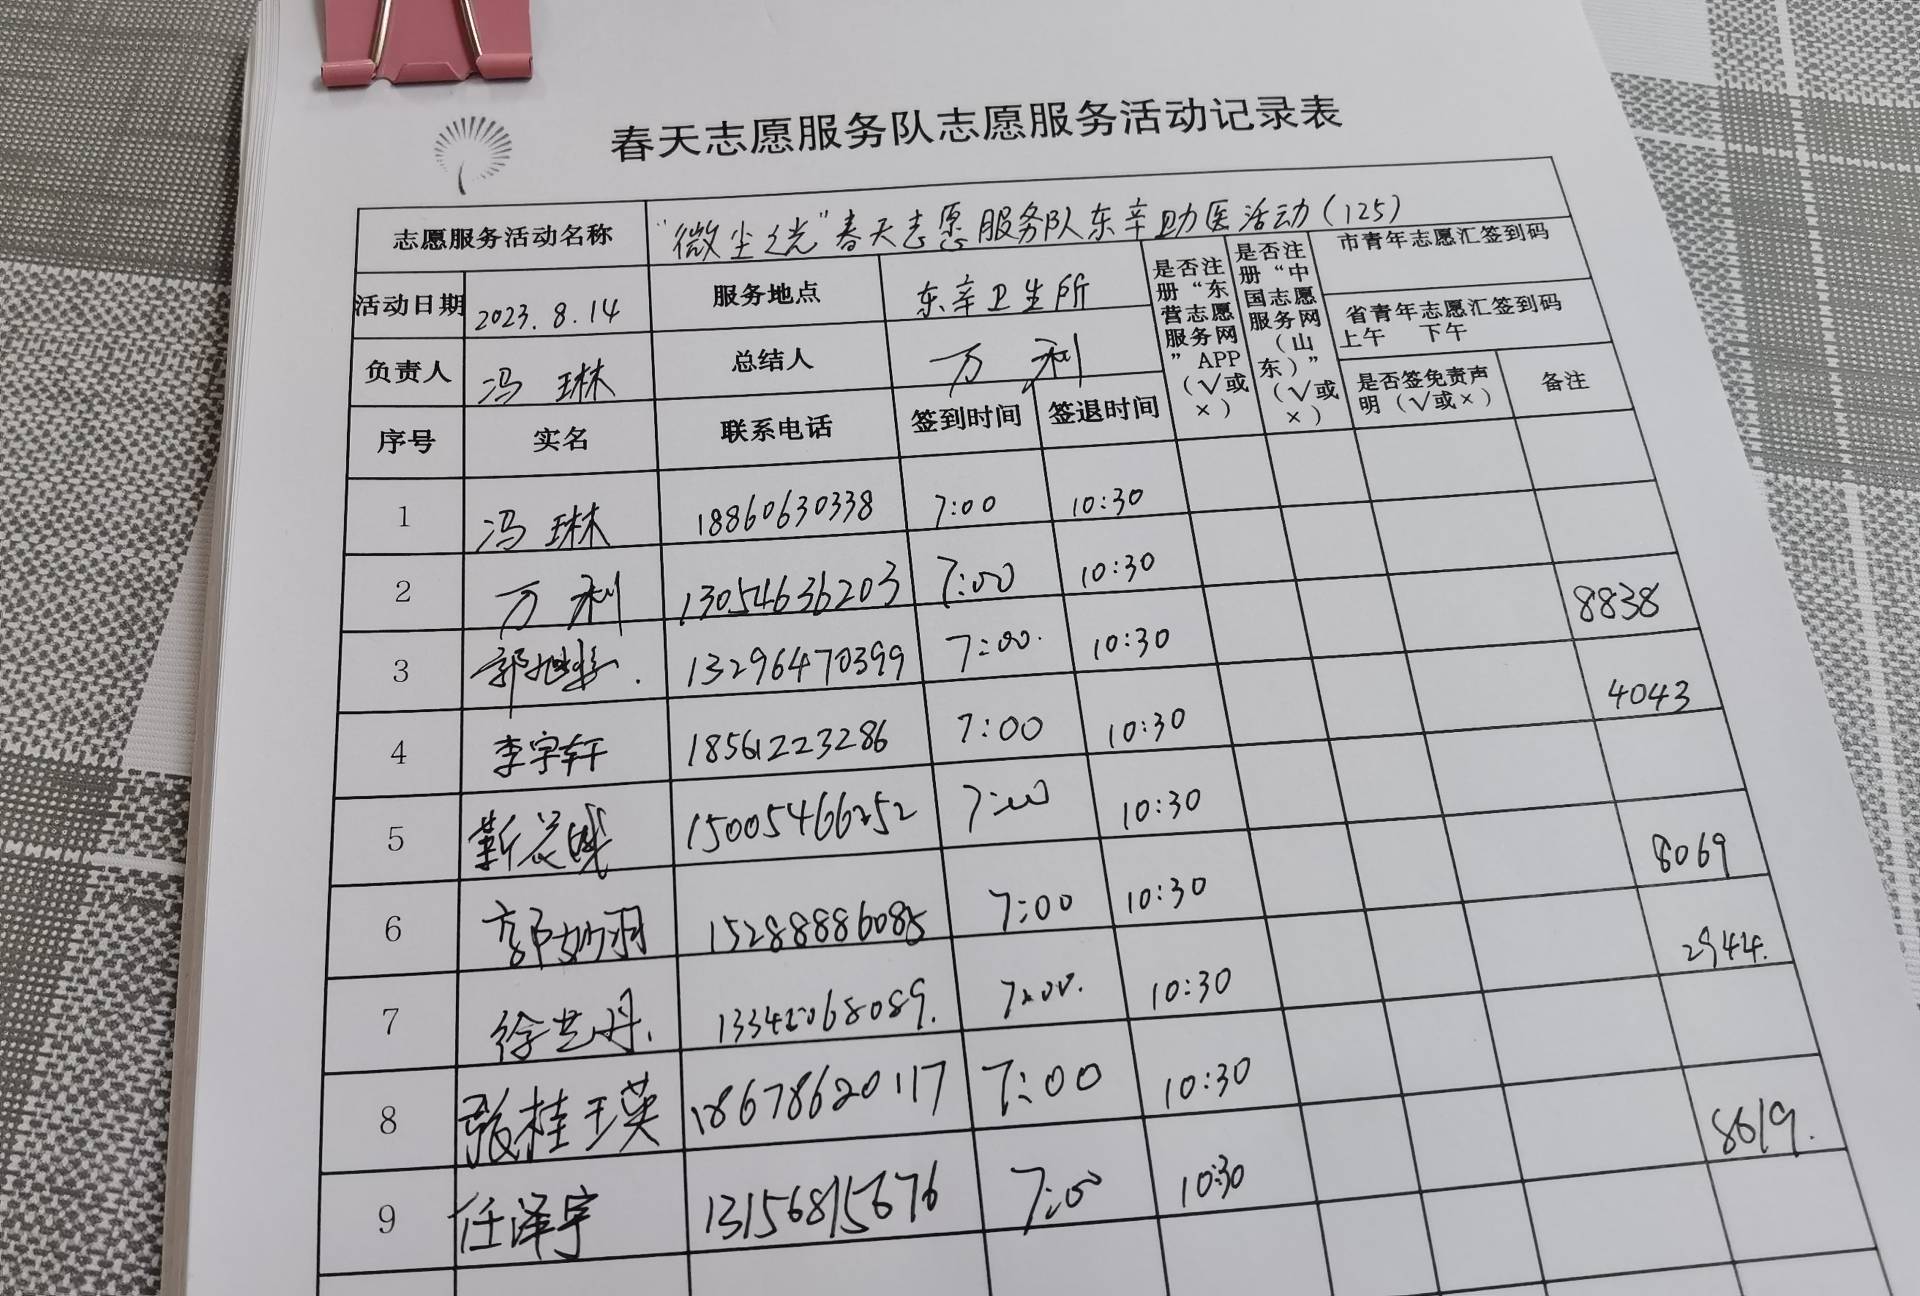 春天志愿服务队志愿服务活动记录表
志愿服务活动名称 “微尘之光”春天志愿服务队东辛助医活动(125)
活动日期 2023.8.14 服务地点 东辛卫生所
负责人 冯琳 总结人 万利
是否注册“东营志愿服务网”APP（√或×）
是否注册“中国志愿服务网（山东）”（√或×）
市青年志愿汇签到码
省青年志愿汇签到码
上午 下午
是否签免责声明（√或×） 备注
序号 实名 联系电话 签到时间 签退时间
1 冯琳 18860630338 7:00 10:30
2 万利 13054636203 7:00 10:30
3 郭旭 13296470399 7:00. 10:30 8838
4 李宇轩 18561223286 7:00 10:30 4043
5 靳 15005466252 7:00 10:30
6 郭 15288886085 7:00 10:30 8069
7 徐艺丹. 7:00. 10:30 2944.
8 张桂英 18678620117 7:00 10:30
9 任泽宇 13156815676 7:00 10:30 8619.